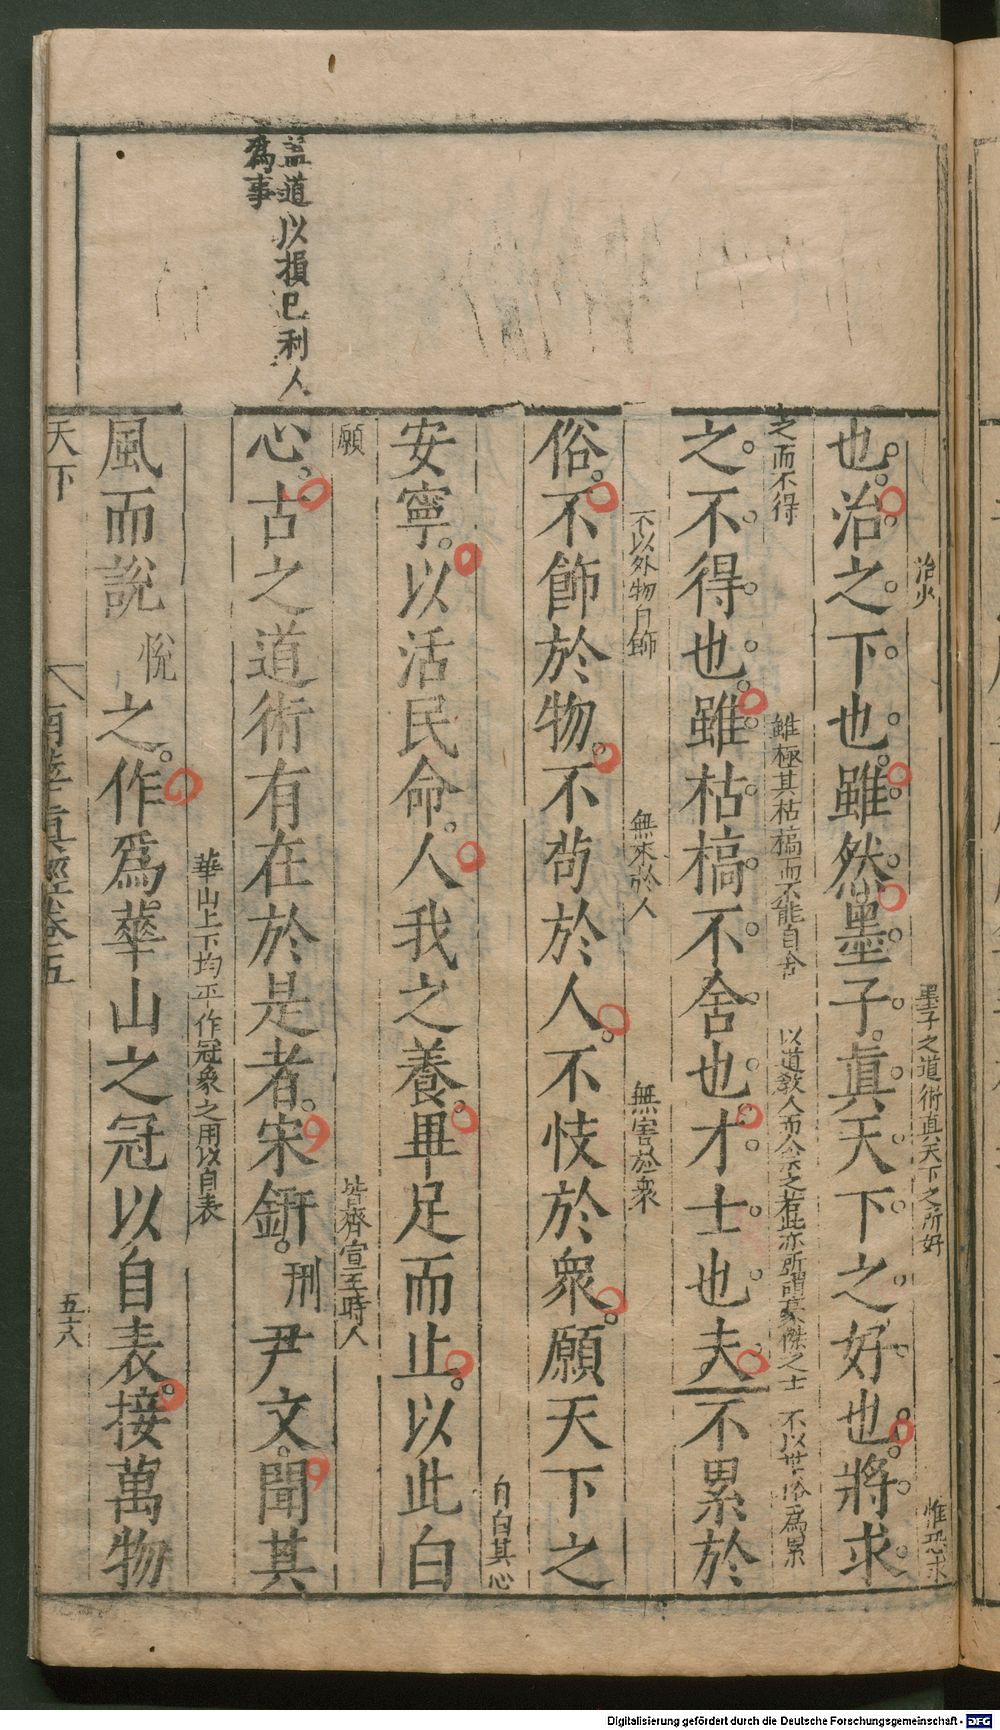 治少
墨子之道術真天下之所好
惟恐求
也治之下也雖然墨子真天下之好也將求
之而不得
雖極其枯槁而不能自舍
以道教人而令之若此亦所謂豪傑之士
不以世俗爲累
之不得也雖枯槁不舍也才士也夫不累於
不以外物自飾
無求於人
無害於衆
俗不飾於物不苟於人不忮於衆願天下之
自白其心
安寧以活民命人我之養畢足而止以此白
願
皆齊宣王時人
蓋道以損己利人
爲事
心古之道術有在於是者宋鈃刑尹文聞其
華山上下均平作冠象之用以自表
風而說悅之作爲華山之冠以自表接萬物
天下
南華真經卷五
五十八
Digitalisierung gefördert durch die Deutsche Forschungsgemeinschaft - DFG